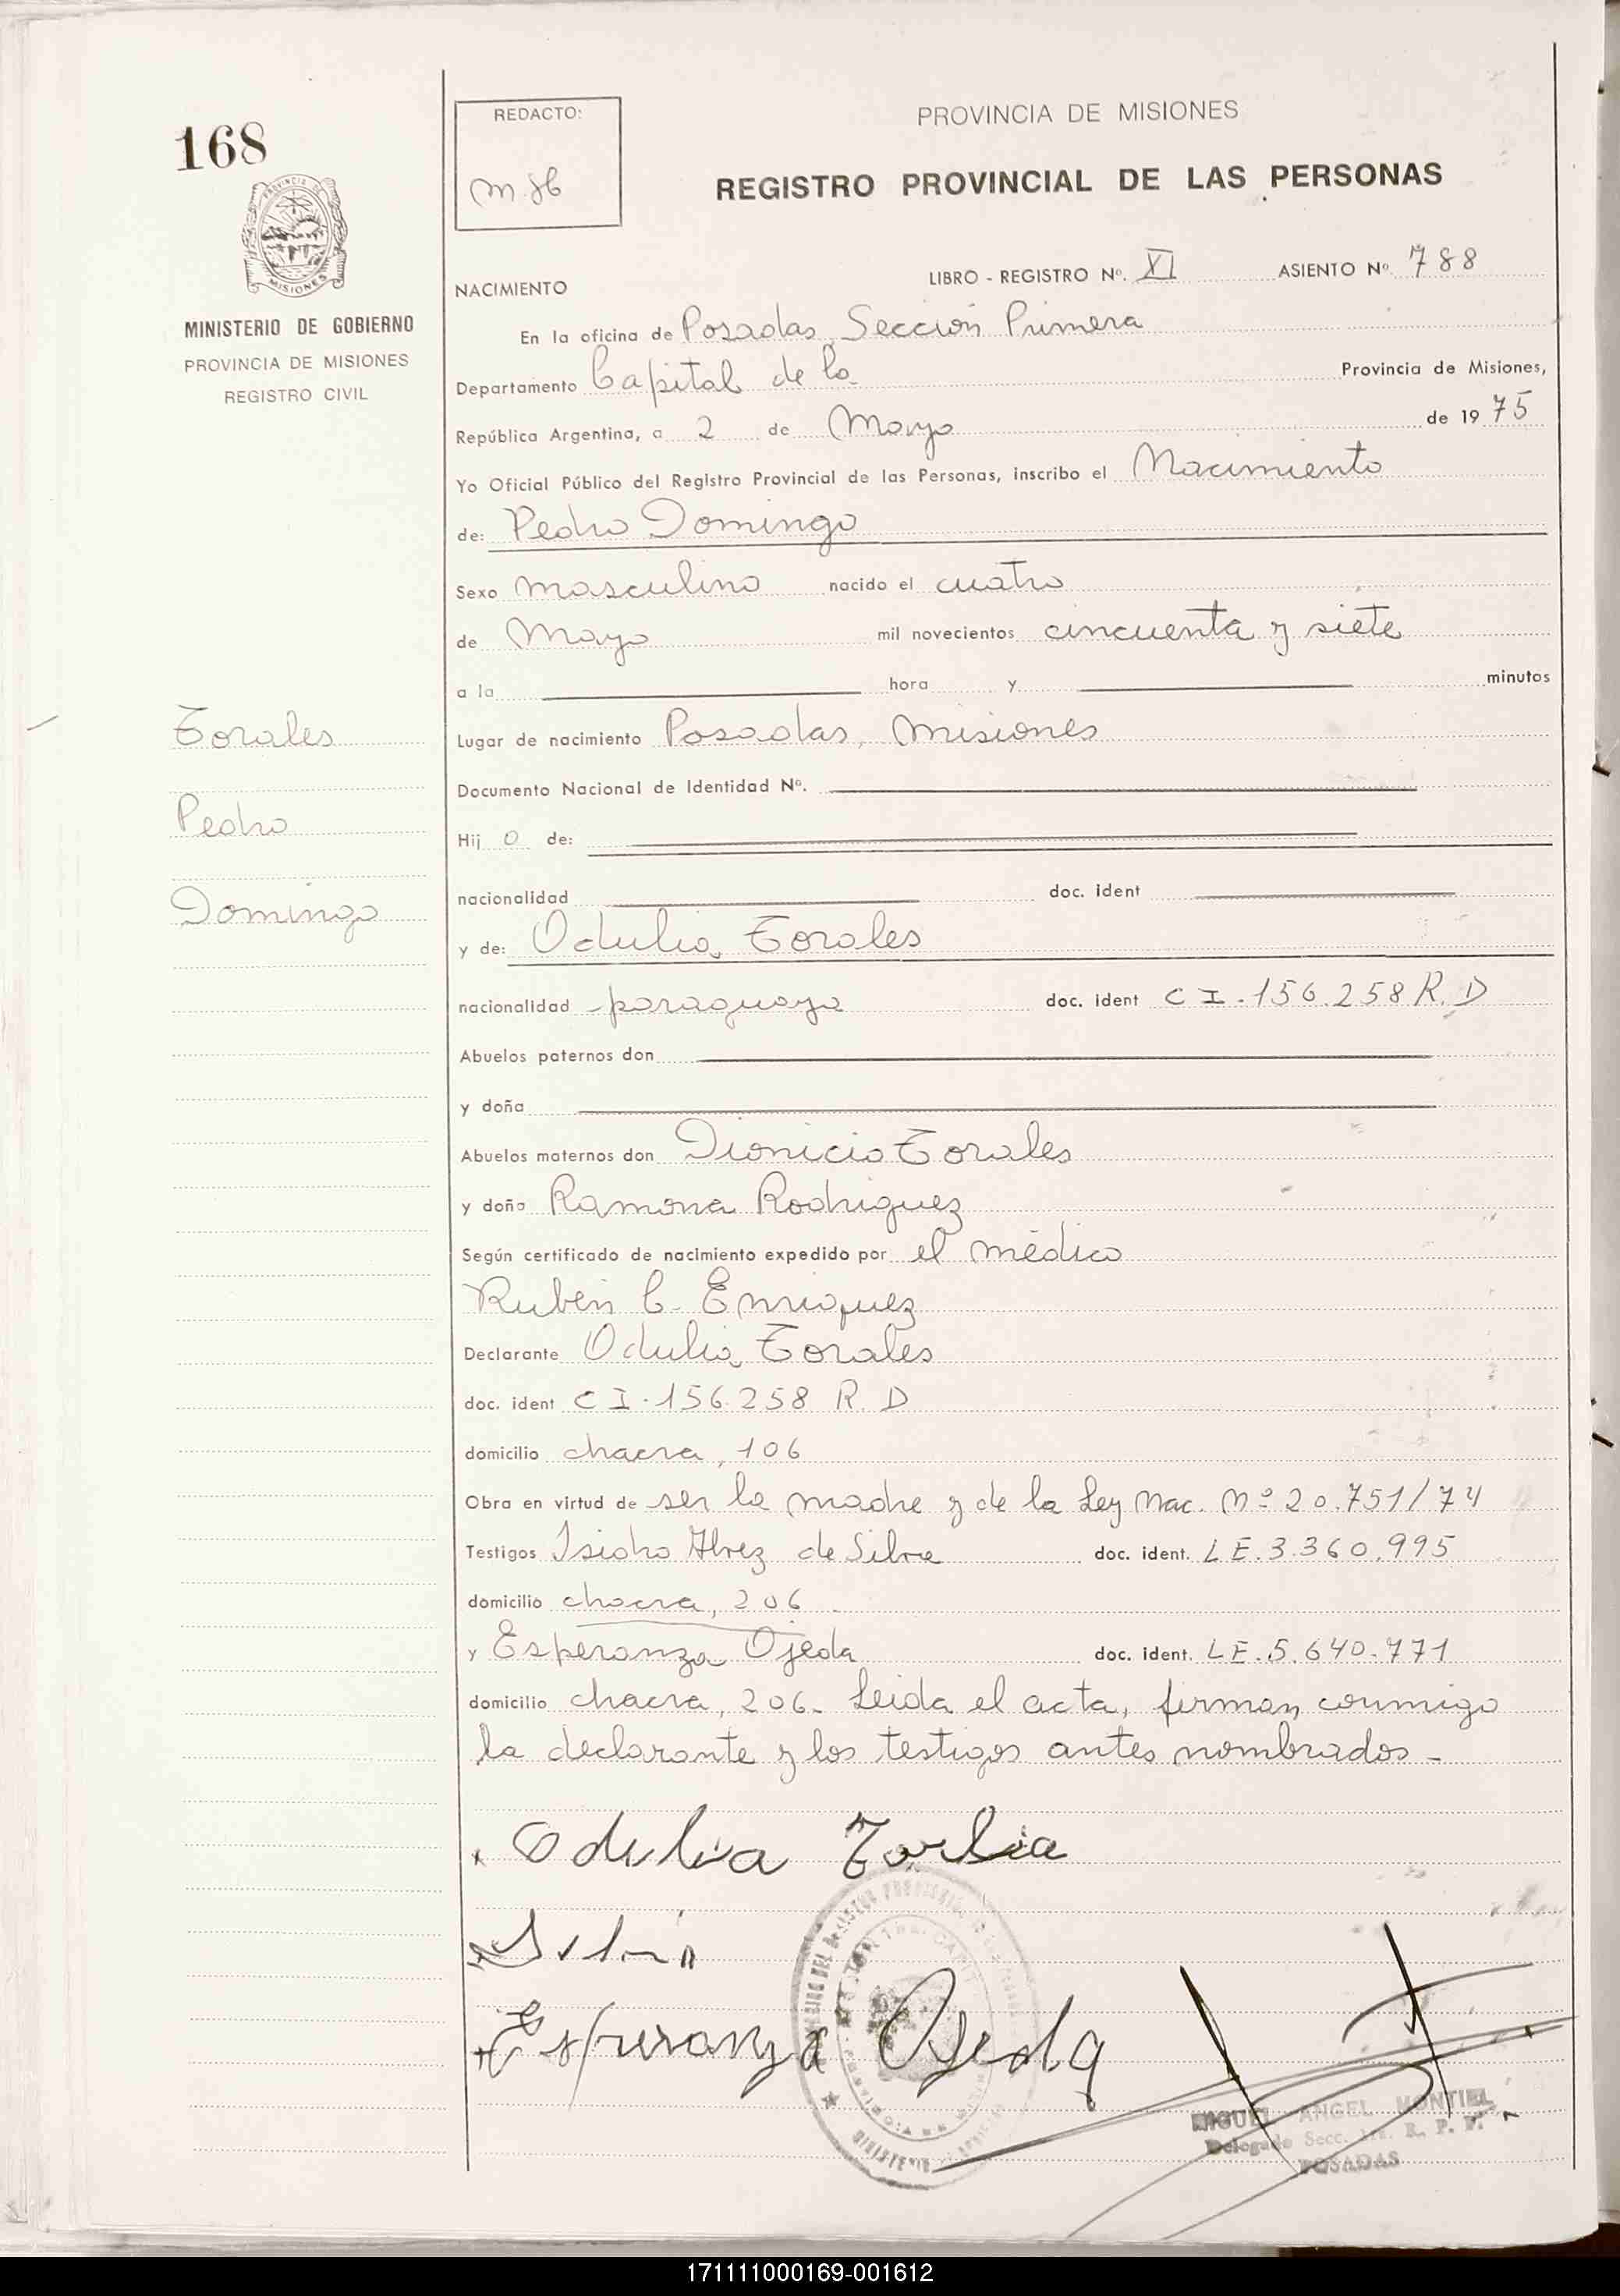 168
MINISTERIO DE GOBIERNO
PROVINCIA DE MISIONES
REGISTRO CIVIL
Torales
Pedro
Domingo
REDACTO:
PROVINCIA DE MISIONES
REGISTRO PROVINCIAL DE LAS PERSONAS
NACIMIENTO LIBRO - REGISTRO Nº. XI ASIENTO Nº. 788
En la oficina de Posadas, Sección Primera
Departamento Capital de la Provincia de Misiones,
República Argentina, a 2 de Mayo de 1975
Yo Oficial Público del Registro Provincial de las Personas, inscribo el Nacimiento
de: Pedro Domingo
Sexo masculino nacido el cuatro
de Mayo mil novecientos cincuenta y siete
a la hora y minutos
Lugar de nacimiento Posadas, Misiones
Documento Nacional de Identidad Nº.
Hijo de:
nacionalidad doc. ident
y de: Odulia Torales
nacionalidad paraguaya doc. ident C I. 156.258 R. D
Abuelos paternos don
y doña
Abuelos maternos don Dionicio Torales
y doña Ramona Rodriguez
Según certificado de nacimiento expedido por el médico
Rubén C. Enriquez
Declarante Odulia Torales
doc. ident C I. 156.258 R. D
domicilio chacra, 106
Obra en virtud de ser la madre y de la Ley Nac. Nº 20.751/74
Testigos Isidro Alvez de Silva doc. ident. LE. 3.360.995
domicilio chacra, 206
y Esperanza Ojeda doc. ident. LE. 5.640.771
domicilio chacra, 206. Leida el acta, firman conmigo
la declarante y los testigos antes nombrados -
Odulia
Esperanza Ojeda
MIGUEL ANGEL MONTIEL
Delegado Secc. 1ra. R. P. P.
POSADAS
171111000169-001612